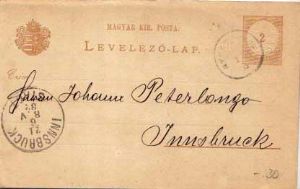 MAGYAR KIR. POSTA.
LEVELEZŐ-LAP.
2
Herrn Johann Peterlongo
Innsbruck
INNSBRUCK
-.30